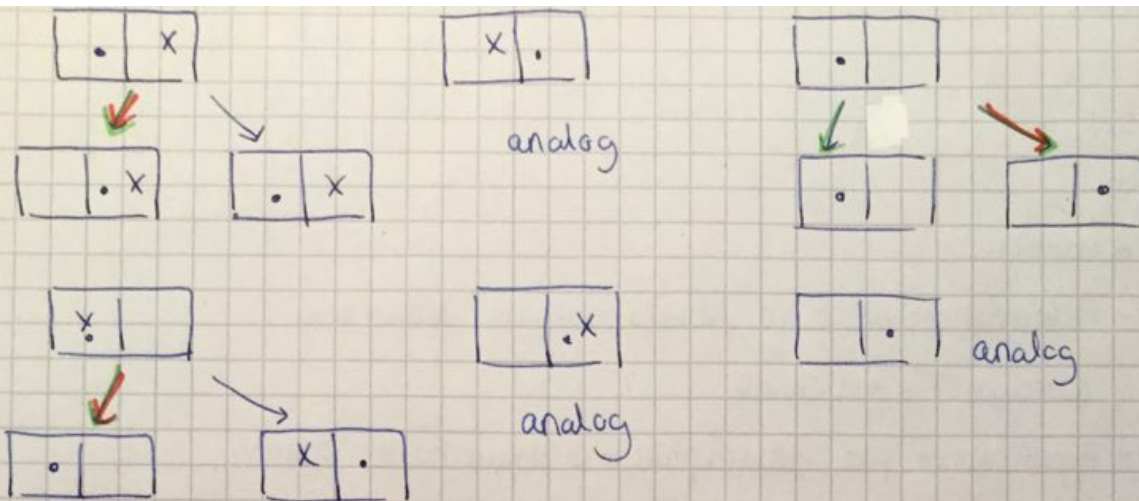 analog
analog
analog